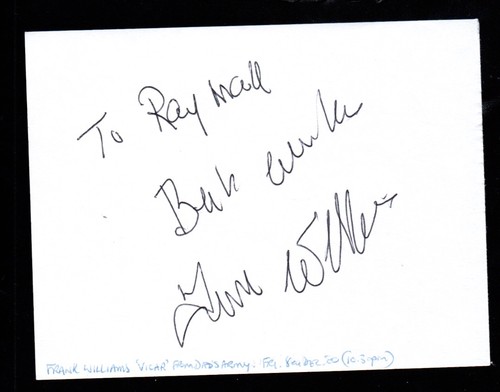 To Ray Wall
Best wishes
Frank Williams
FRANK WILLIAMS 'VICAR' FROM DADS ARMY. FRI. 8th DEC. '00 (10.30pm)